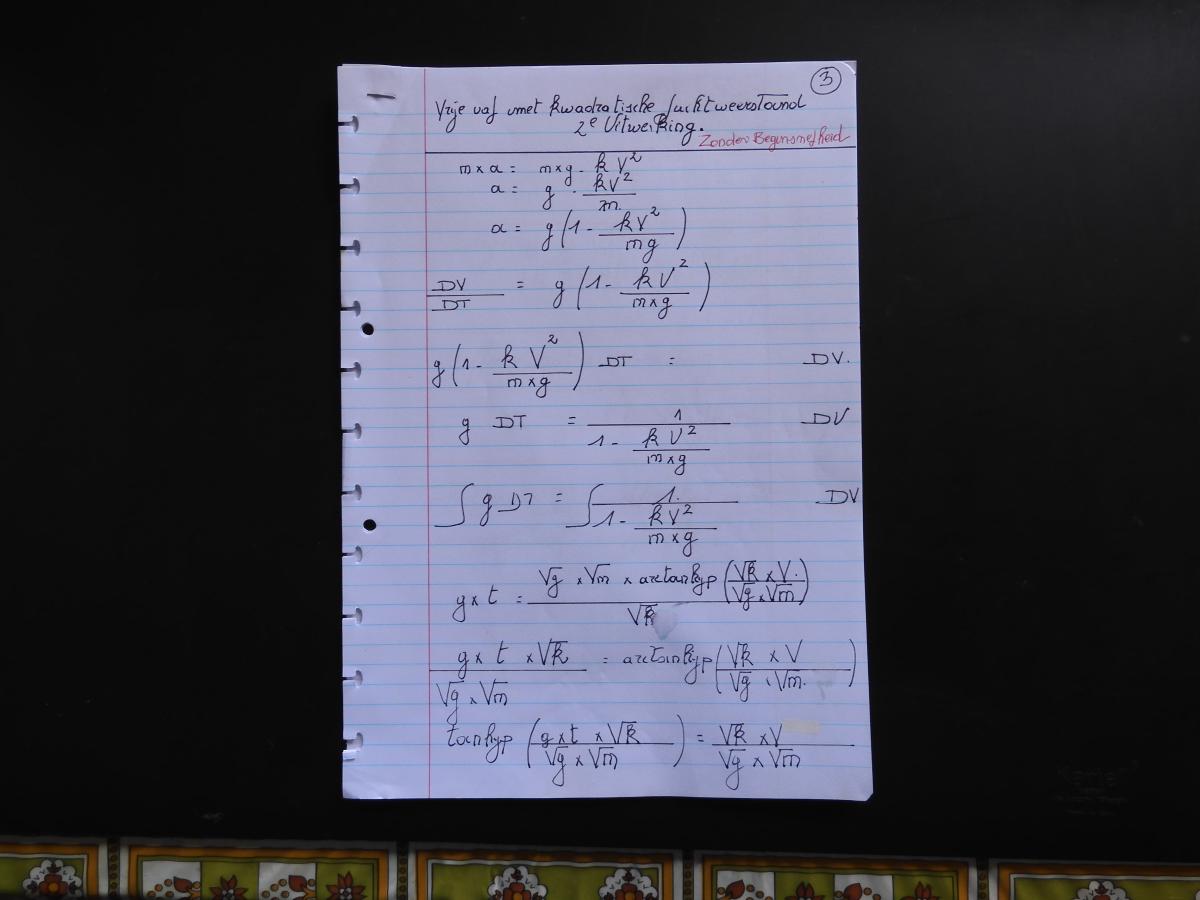 3
Vrije val met kwadratische luchtweerstand
2e Uitwerking.
Zonder Beginsnelheid
m x a = m x g - k V²
a = g - kV²/m
a = g (1 - kV²/mg)
DV/DT = g (1 - kV²/m x g)
g (1 - k V²/m x g) DT = DV.
g DT = 1/(1 - k V²/m x g) DV
∫ g DT = ∫ 1/(1 - kV²/m x g) DV
g x t = √g x √m x arctanhyp (√k x V/√g x √m) / √k
g x t x √k / √g x √m = arctanhyp (√k x V / √g x √m)
tanhyp (g x t x √k / √g x √m) = √k x V / √g x √m